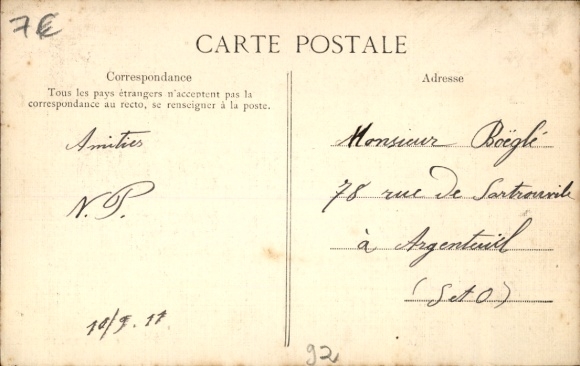 7€
CARTE POSTALE
Correspondance
Tous les pays étrangers n'acceptent pas la
correspondance au recto, se renseigner à la poste.
Amitiés
N. P.
11/9. 11
Adresse
Monsieur Böeglé
78 rue de Sartrouville
à Argenteuil
(S et O)
92